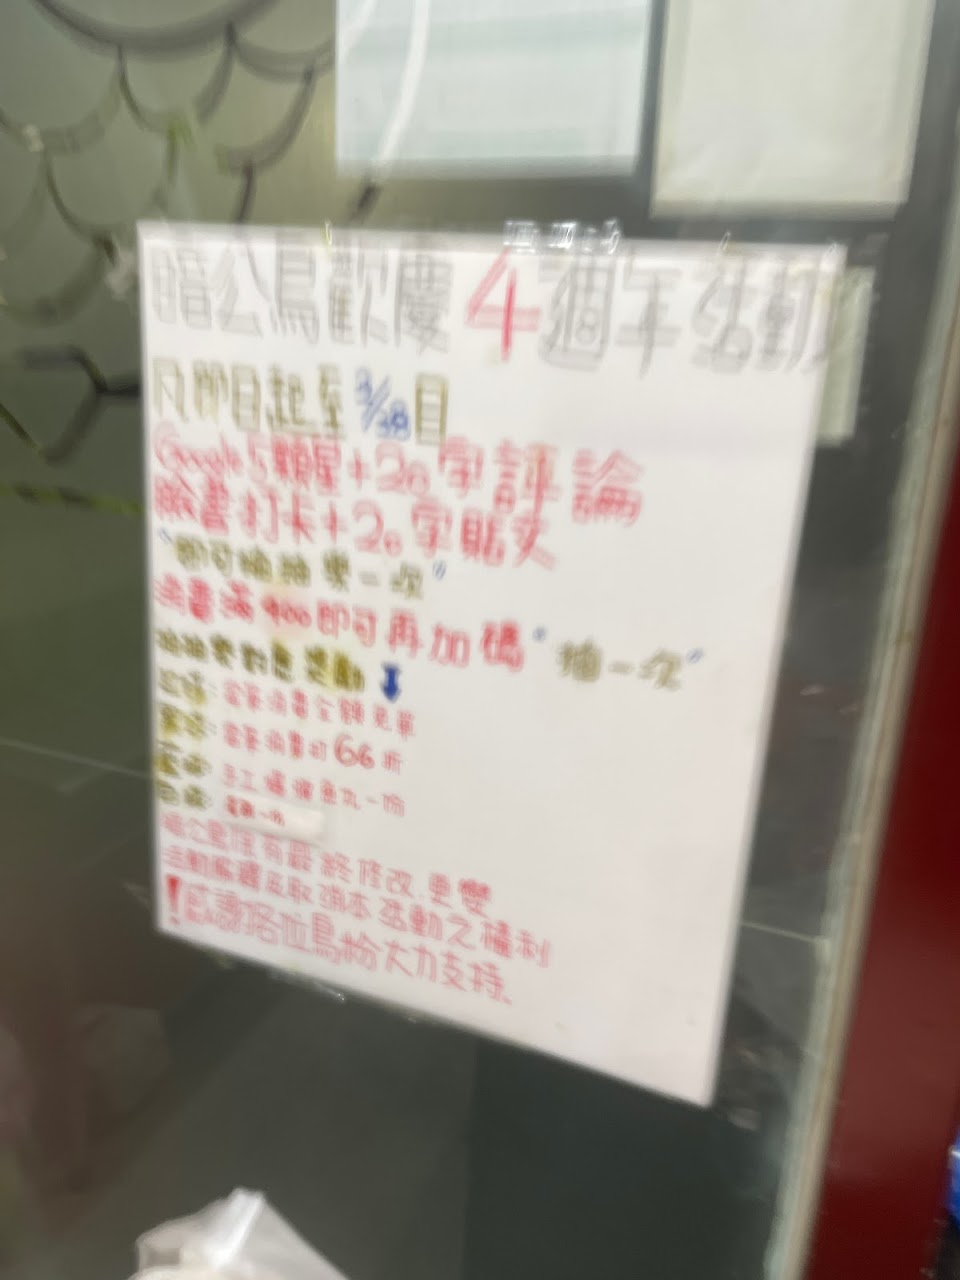 公鳥歡慶4週年活動
凡即日起至3/28日
Google 5顆星+20字評論
臉書打卡+20字貼文
"即可抽抽樂一次"
消費滿900即可再加碼"抽一次"
抽抽樂對應獎勵⬇
當筆消費全額免單
當筆消費打66折
手工 魚丸一份
一份
公鳥保有最終修改.更變
活動解釋及取消本活動之權利
!感謝各位鳥粉大力支持.